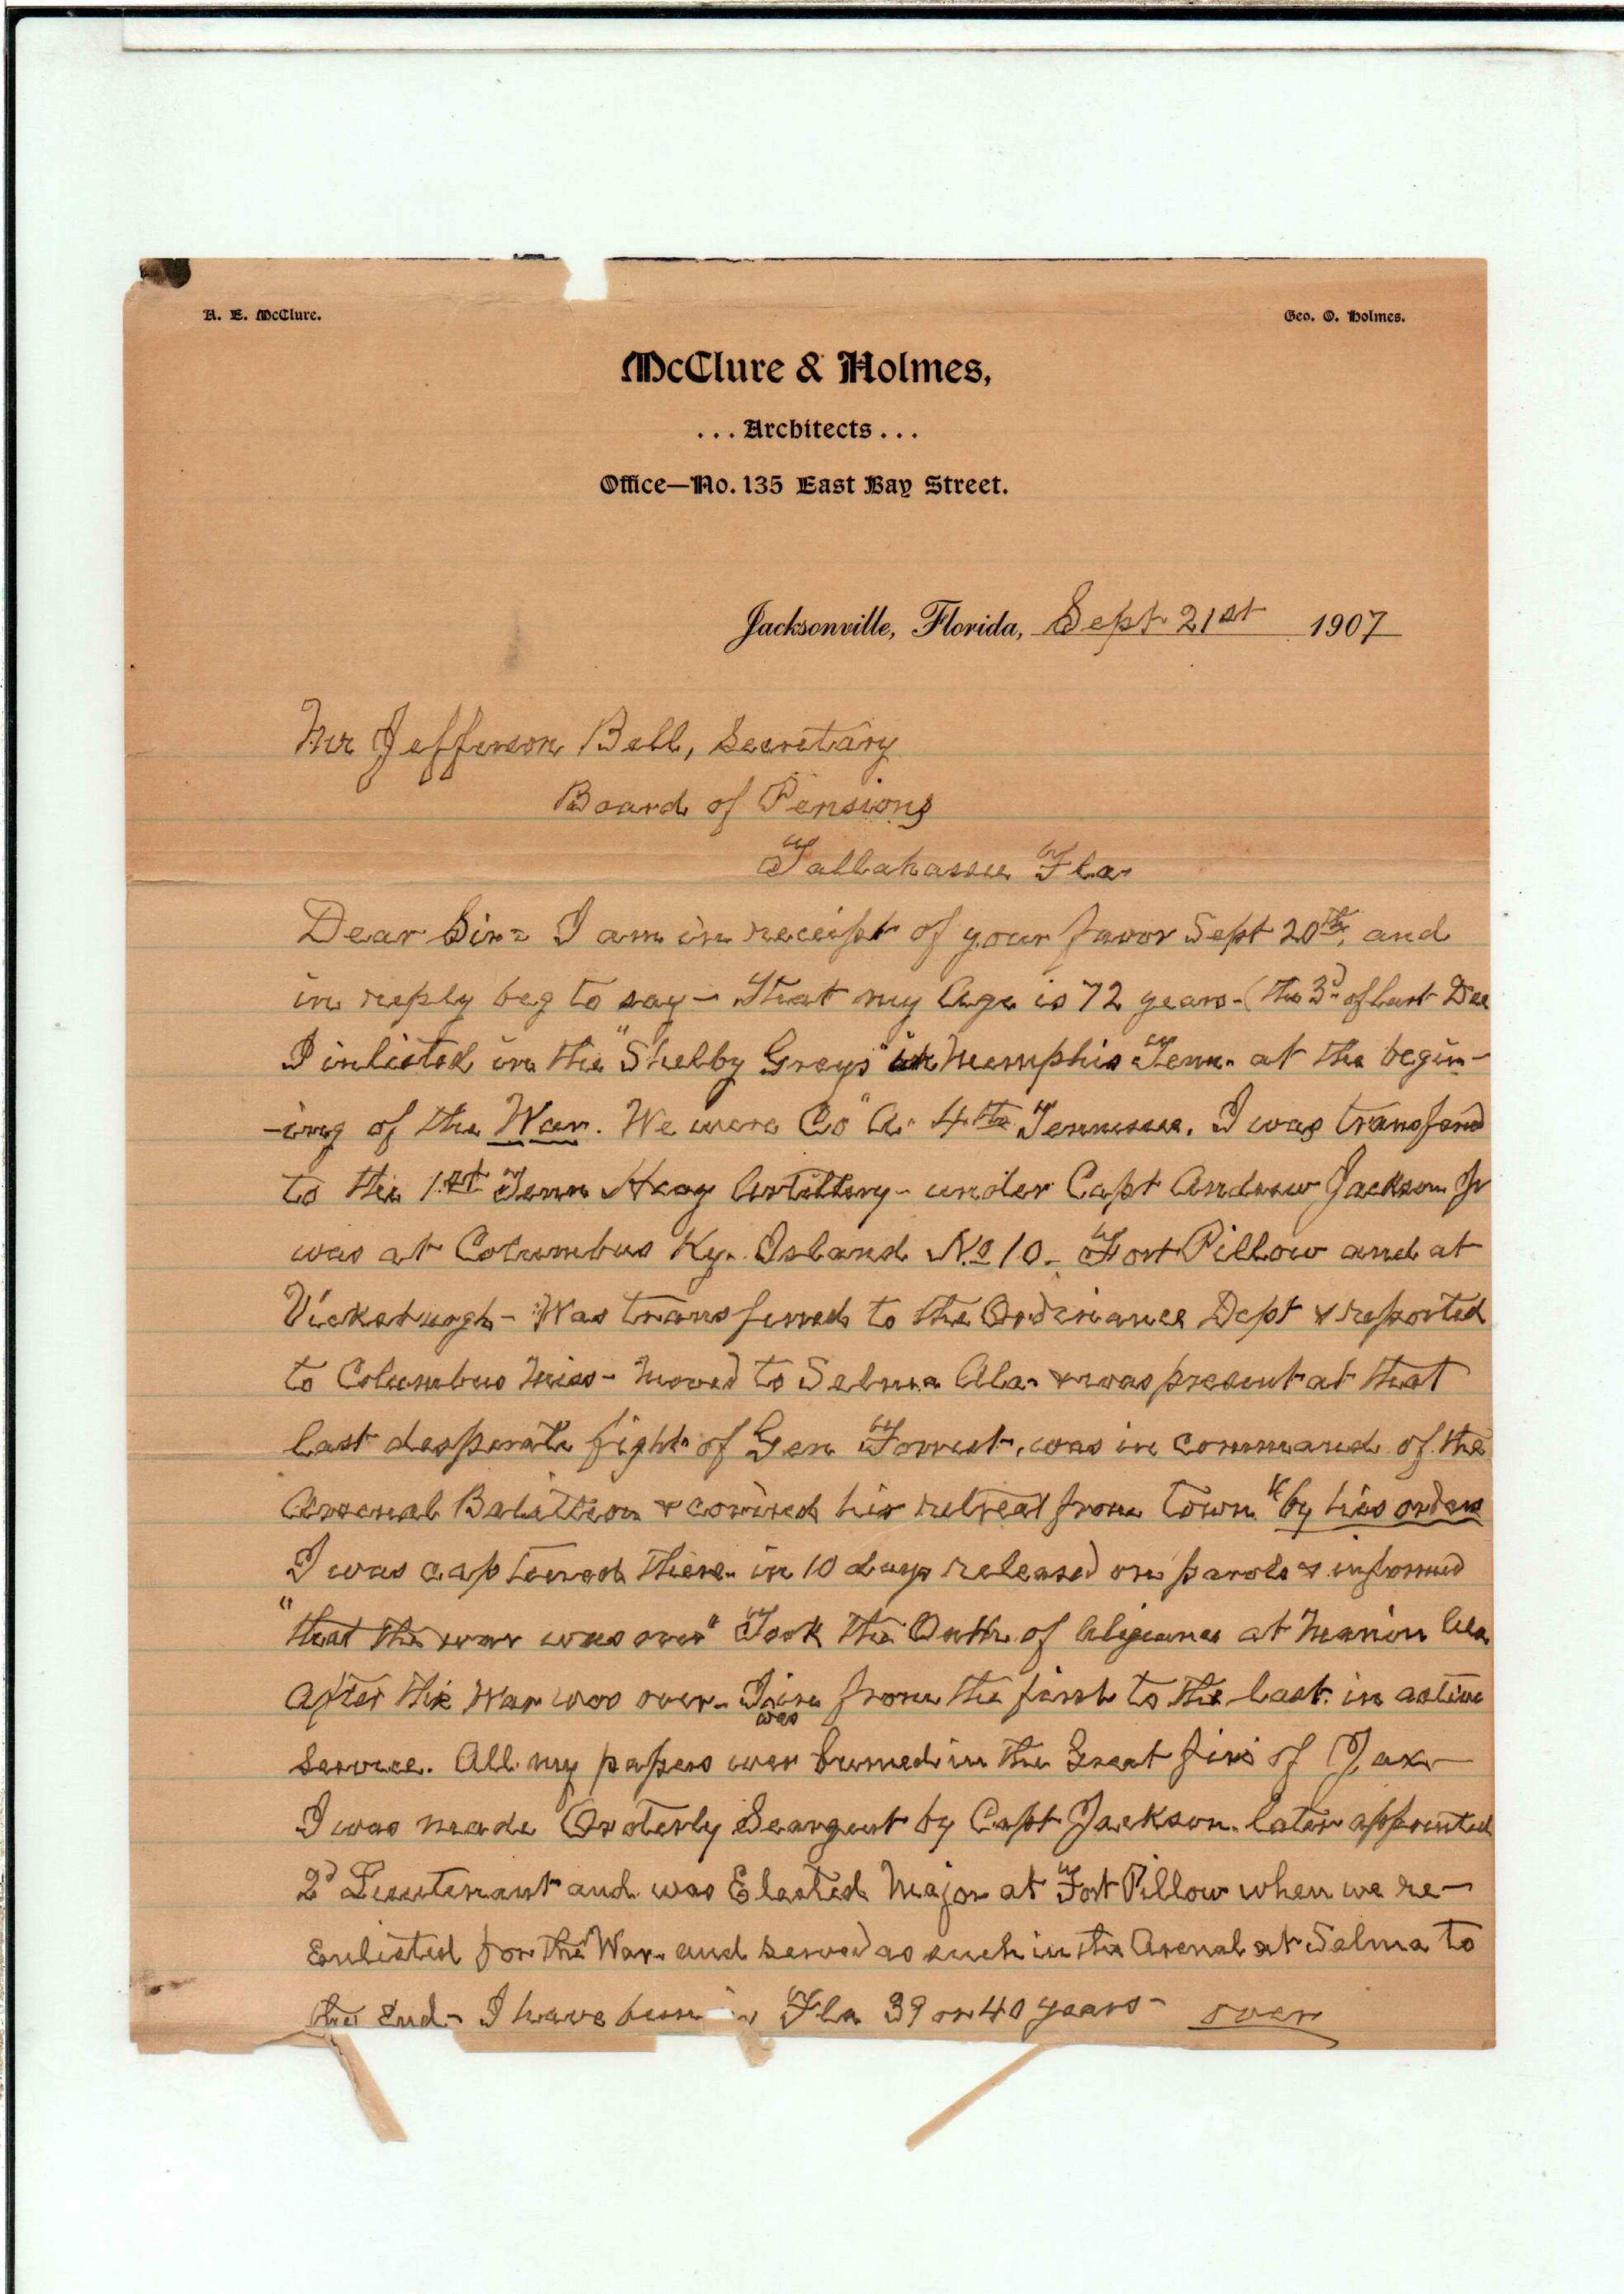 A. E. McClure.
Geo. O. Holmes.
McClure & Holmes,
... Architects ...
Office—No. 135 East Bay Street.
Jacksonville, Florida, Sept 21st 1907
Mr Jefferson Bell, Secretary
Board of Pensions
Tallahassee Fla
Dear Sir= I am in receipt of your favor Sept 20th, and
in reply beg to say - That my Age is 72 years - (the 3d of last Dec
I inlisted in the "Shelby Greys" in Memphis Tenn. at the begin-
-ing of the War. We were Co "A" 4th Tennessee. I was transferd
to the 1st Tenn Heavy Artillery - under Capt Andrew Jackson Jr
was at Columbus Ky. Island No 10 - Fort Pillow and at
Vicksburgh - Was transferred to the Ordinance Dept & reported
to Columbus Miss - Moved to Selma Ala - & was present at that
last desperate fight of Gen Forrest, was in command of the
Arsenal Batallion & covered his retreat from town "by his orders
I was captured there. in 10 days released on parole & informed
"that the war was over" Took the Oath of Alegiance at Marion Ala
after the War was over - I was from the first to the last in active
Service. All my papers wer burned in the Great fire of Jax -
I was made Orderly Seargent by Capt Jackson. later appointed
2d Lieutenant and was Elected Major at Fort Pillow when we re-
Enlisted for the War. and served as such in the Arsenal at Selma to
the End - I have been Fla 39 or 40 years - over